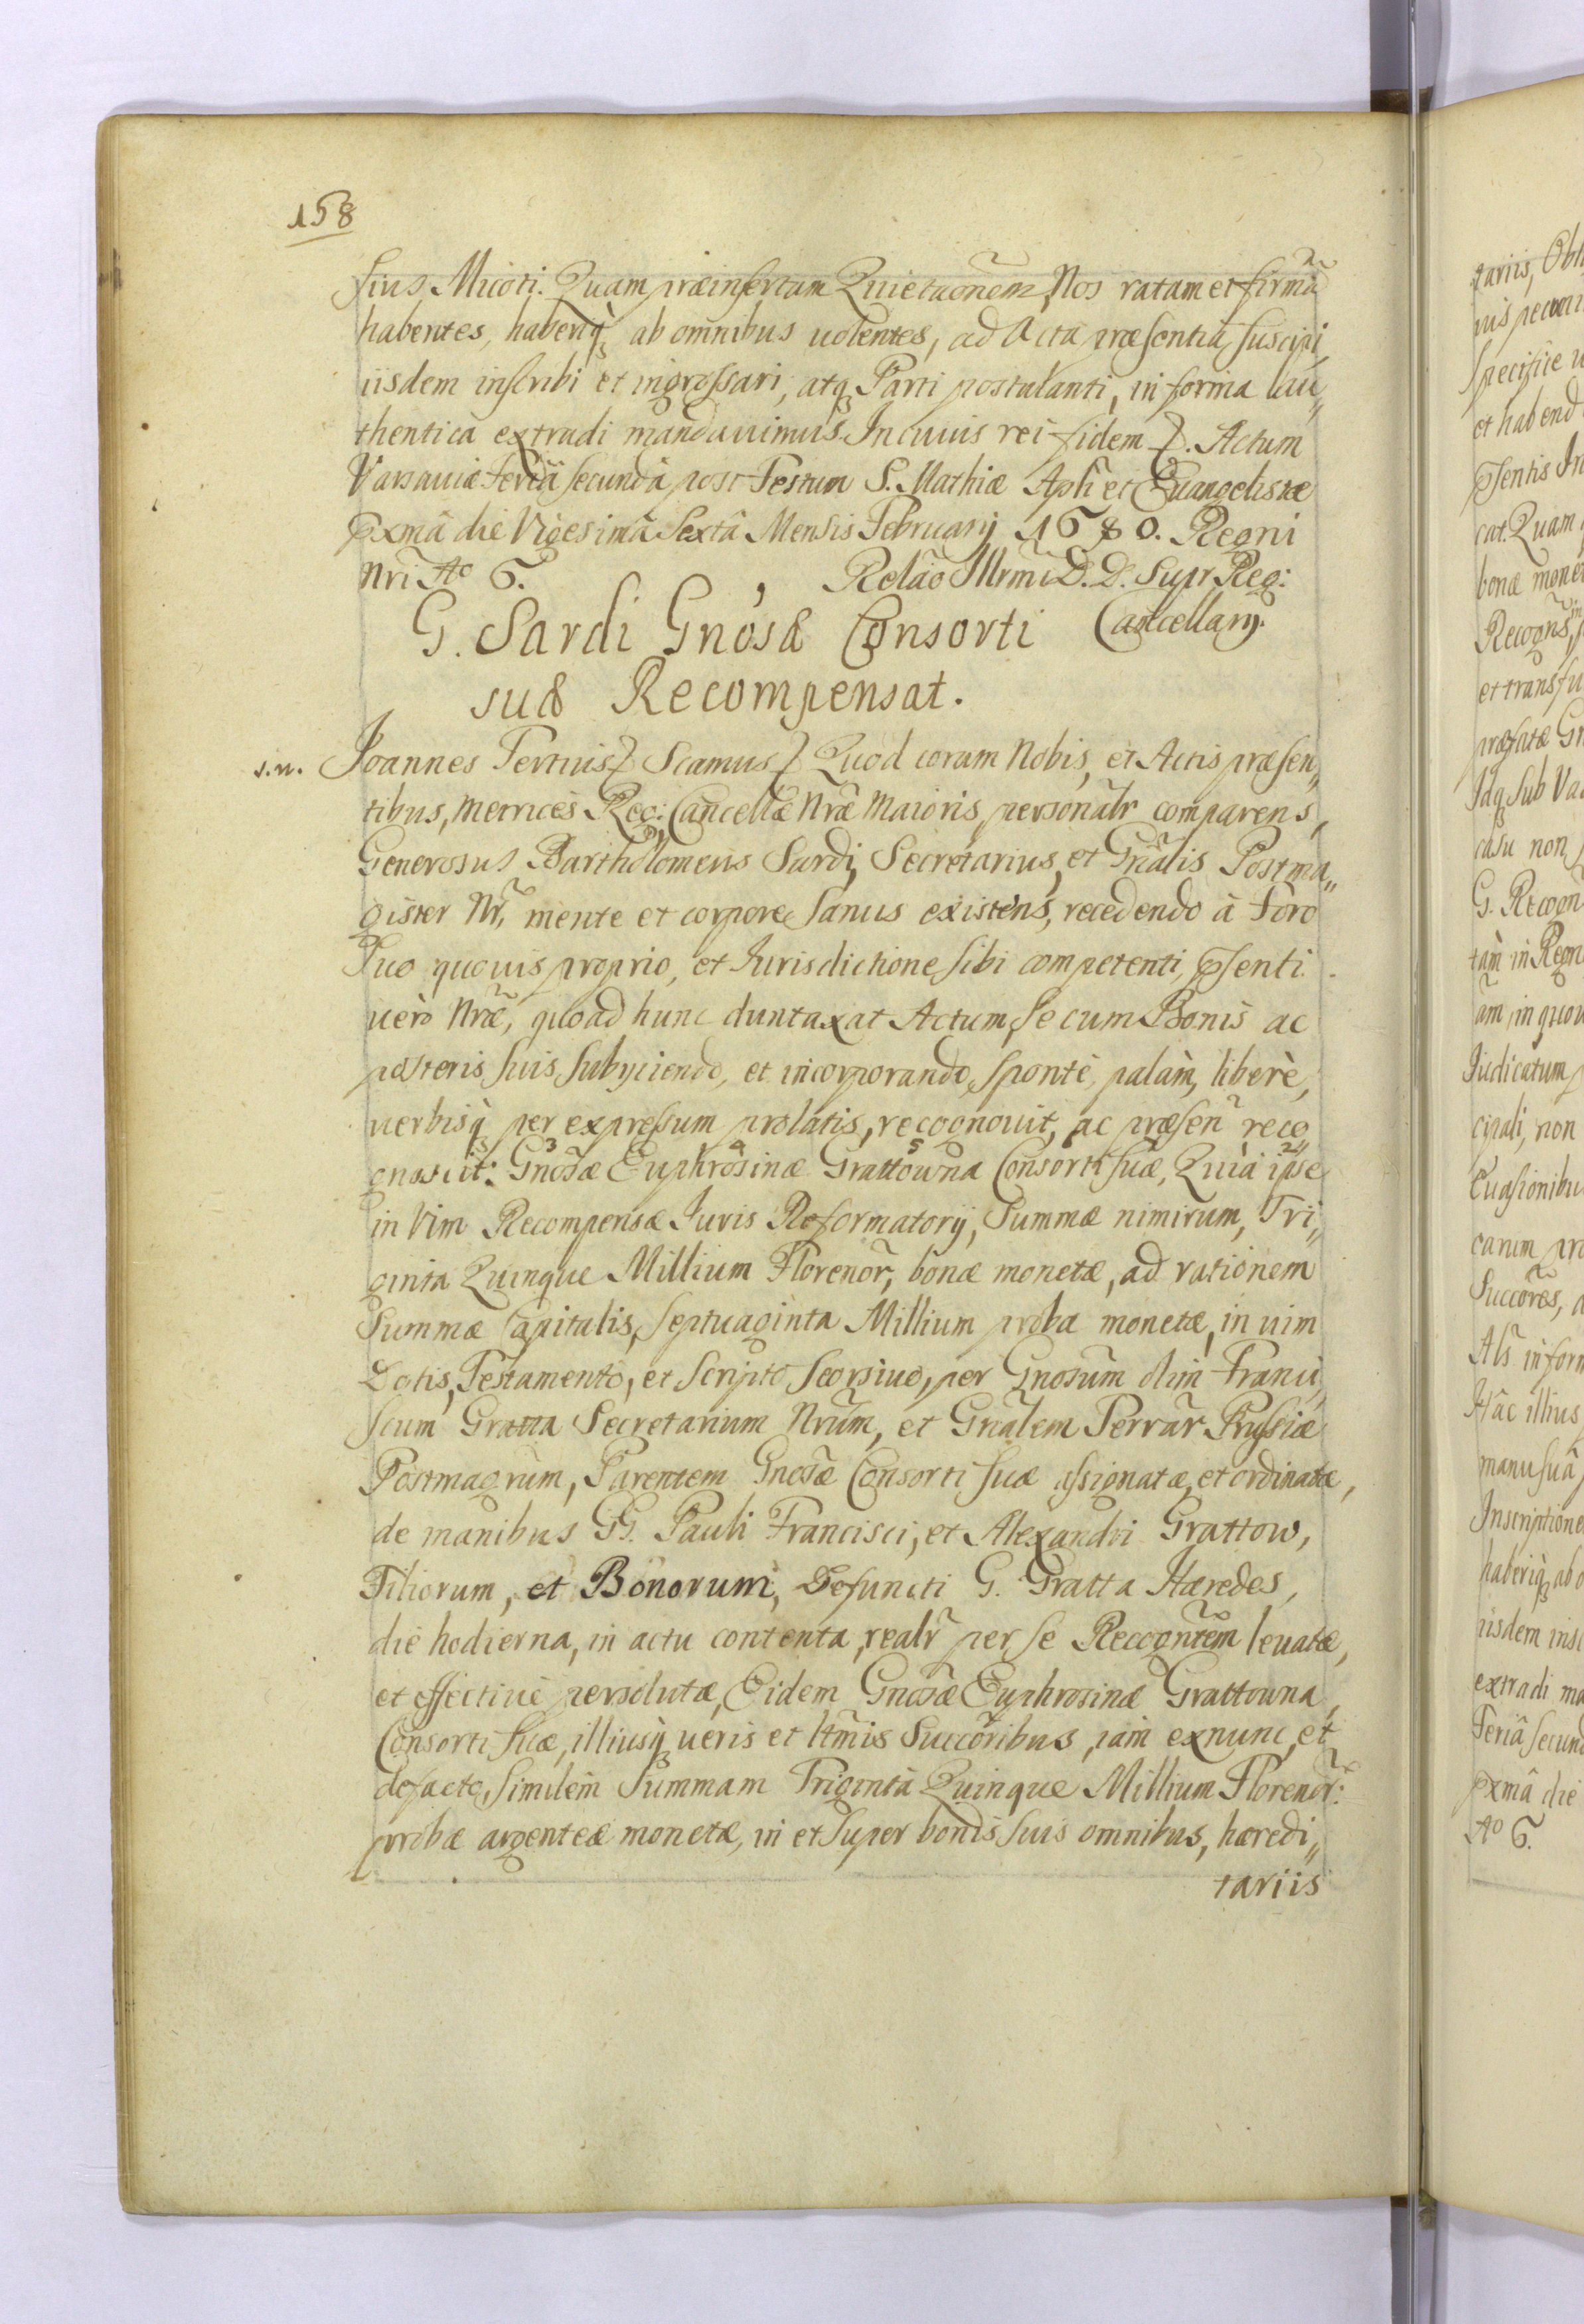 158
sius Micoti. Quam præinsertam Quietaõnem, Nos ratam et firmã
habentes, haberiq; ab omnibus uolentes, ad Acta præsentia suscipi,
iisdem inscribi et ingrossari, atq; Parti postulanti, in forma au„
thentica extradi mandauimus. In cuius rei fidem &. Actum
Varsauiæ Feriâ secundâ post Festum S. Mathiæ Apłi et Euangelistæ
pxmâ die Vigesimâ Sextâ Mensis Februarij 1680. Regni
Nri Ao 6. Relão Illrmi D. D. Supr. Reg:
Cancellarij.
G. Sardi Gnosæ Consorti
suæ Recompensat.
s.n. Joannes Tertius & Scamus & Quod coram Nobis, et Actis præsen„
tibus, Metrices Reg: Cancellæ Nræ Maioris, personalr comparens,
Generosus Bartholomeus Sardi, Secretarius, et Gnãlis Postma„
gister Nr, mente et corpore sanus existens, recedendo à Foro
suo quouis proprio, et Iurisdictione sibi competenti, psenti
uerò Nræ, quo ad hunc duntaxat Actum, Se cum Bonis ac
posteris suis subijciendo, et incorporando, sponte, palàm, liberè,
uerbisq; per expressum prolatis, recognouit, ac præsen reco„
gnoscit: Gnosæ Euphrosinæ Grattowna Consorti suæ, Quia ipse
in Vim Recompensæ Iuris Reformatorij, Summæ nimirum, Tri„
ginta Quinque Millium Florenor, bonæ monetæ, ad rationem
Summæ Capitalis, Septuaginta Millium proba monetæ, in uim
Dotis, Testamento, et Scripto Seorsiuo, per Gnosum olim Franci„
scum Gratta Secretarium Nrum, et Gnãlem Terrar Prussiæ
Postmagrum, Parentem Gnosæ Consorti suæ assignatæ, et ordinatæ,
de manibus GG. Pauli Francisci, et Alexandri Grattow,
Filiorum, et Bonorum, Defuncti G. Gratta Hæredes,
die hodierna, in actu contenta, realr per se Recogntem leuatæ,
et effectiuè persolutæ, Eidem Gnosæ Euphrosinæ Grattowna,
Consorti suæ, illiusq; ueris et ltmis Succoribus, iam exnunc, et
defacto, similem Summam Triginta Quinque Millium Florenor:
probæ argenteæ monetæ, in et super bonis suis omnibus, hæredi„
tariis